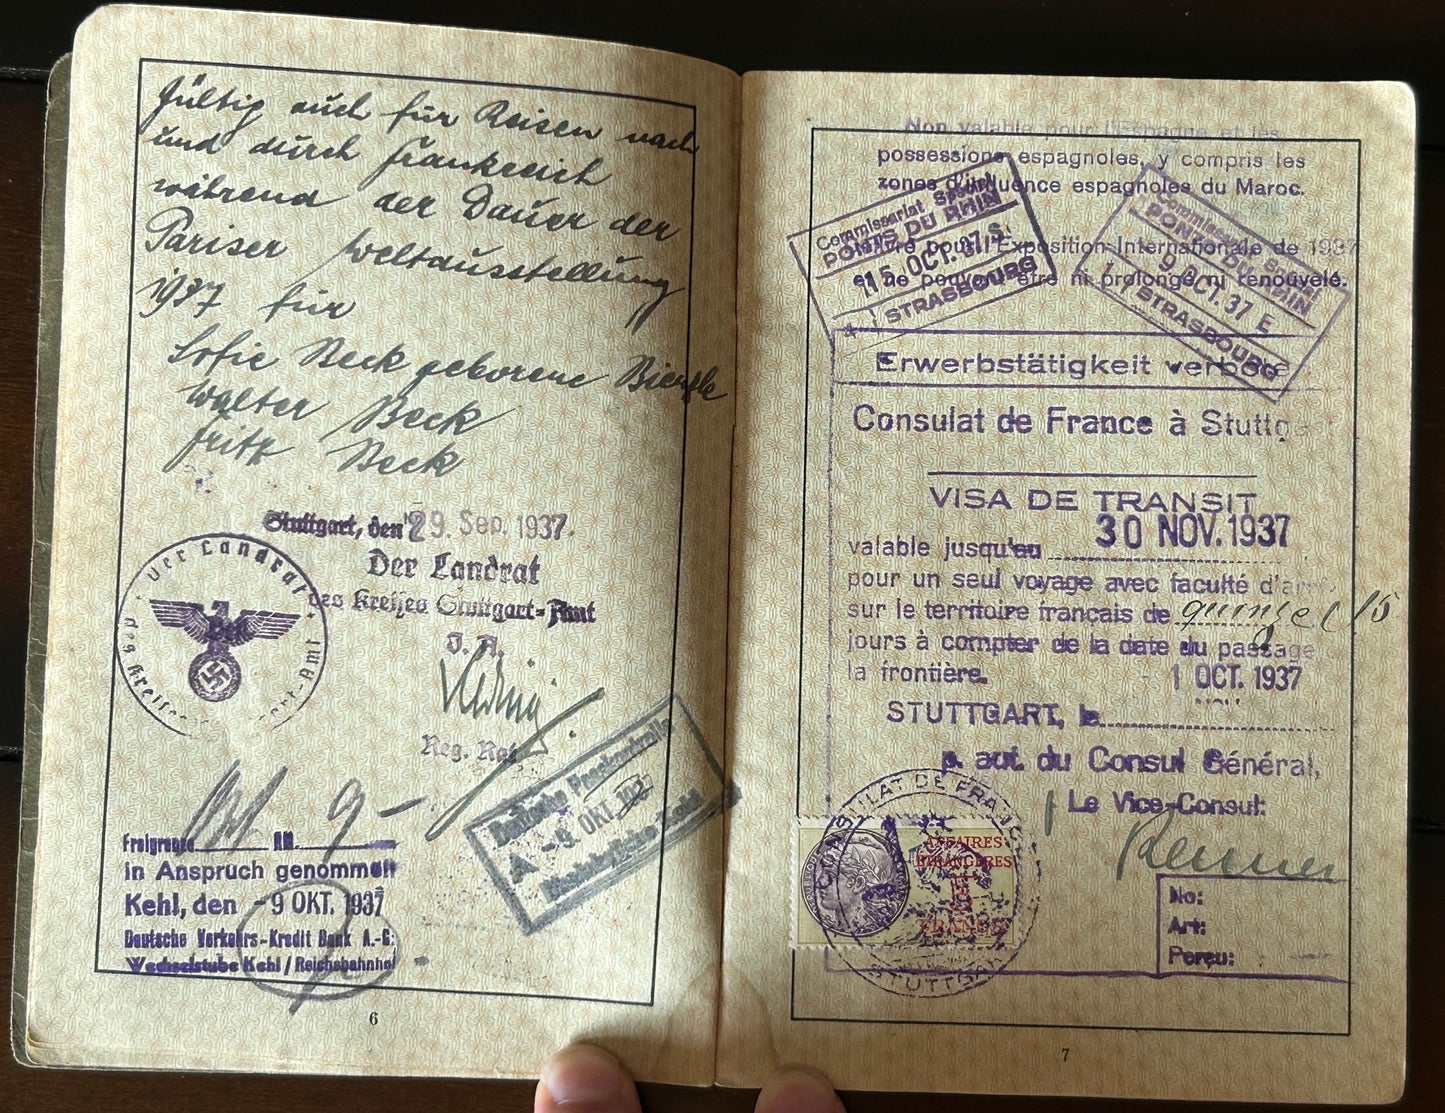 Gültig auch für Reisen nach
und durch Frankreich
während der Dauer der
Pariser Weltausstellung
1937 für
Sofie Beck geborene
Walter Beck
Fritz Beck
Stuttgart, den 29. Sep. 1937.
Der Landrat
des Kreises Stuttgart-Amt
J. A.
Reg. Rat
Der Landrat
des Kreises Stuttgart-Amt
Deutsche Passkontrolle
A -9. OKT. 1937
Kehl
9-
Freigrenze RM.
in Anspruch genommen
Kehl, den -9 OKT. 1937
Deutsche Verkehrs-Kredit Bank A.-G.
Wechselstube Kehl / Reichsbahnhof
6
Non valable pour l'Espagne et les
possessions espagnoles, y compris les
zones d'influence espagnoles du Maroc.
Délivré pour l'Exposition Internationale de 1937
et ne pouvant être ni prolongé ni renouvelé.
Commissariat Spécial
PONTS DU RHIN
15 OCT. 37 S
STRASBOURG
Commissariat Spécial
PONTS DU RHIN
9 OCT. 37 E
STRASBOURG
Erwerbstätigkeit verboten
Consulat de France à Stuttgart
VISA DE TRANSIT
valable jusqu'au 30 NOV. 1937
pour un seul voyage avec faculté d'arrêt
sur le territoire français de quinze (15
jours à compter de la date du passage
la frontière.
1 OCT. 1937
STUTTGART, le
p. aut. du Consul Général,
Le Vice-Consul:
CONSULAT DE FRANCE
STUTTGART
AFFAIRES
ETRANGERES
FRANCS
No:
Art:
Perçu:
7